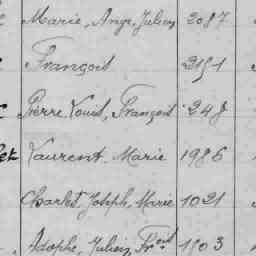 Marie, Ange, Julien 2087
François 2151
Pierre Louis, François 248
et Laurent Marie 1986
Charles, Joseph, Marie 1021
Adolphe, Julien, Fr.ois 1103